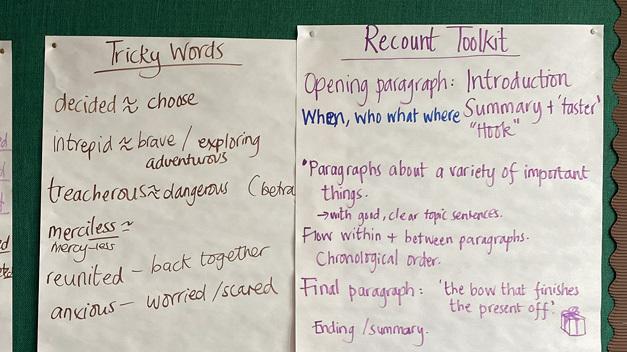 Tricky Words
decided ≈ choose
intrepid ≈ brave / exploring
adventurous
treacherous ≈ dangerous (betra
merciless ≈
mercy-less
reunited – back together
anxious – worried / scared
Recount Toolkit
Opening paragraph: Introduction
When, who what where Summary + 'taster'
"Hook"
• Paragraphs about a variety of important
things.
→ with good, clear topic sentences.
Flow within + between paragraphs.
Chronological order.
Final paragraph: 'the bow that finishes
the present off'.
Ending / summary.